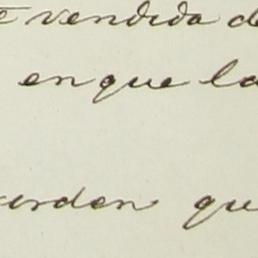 vendida de
en que la
orden que